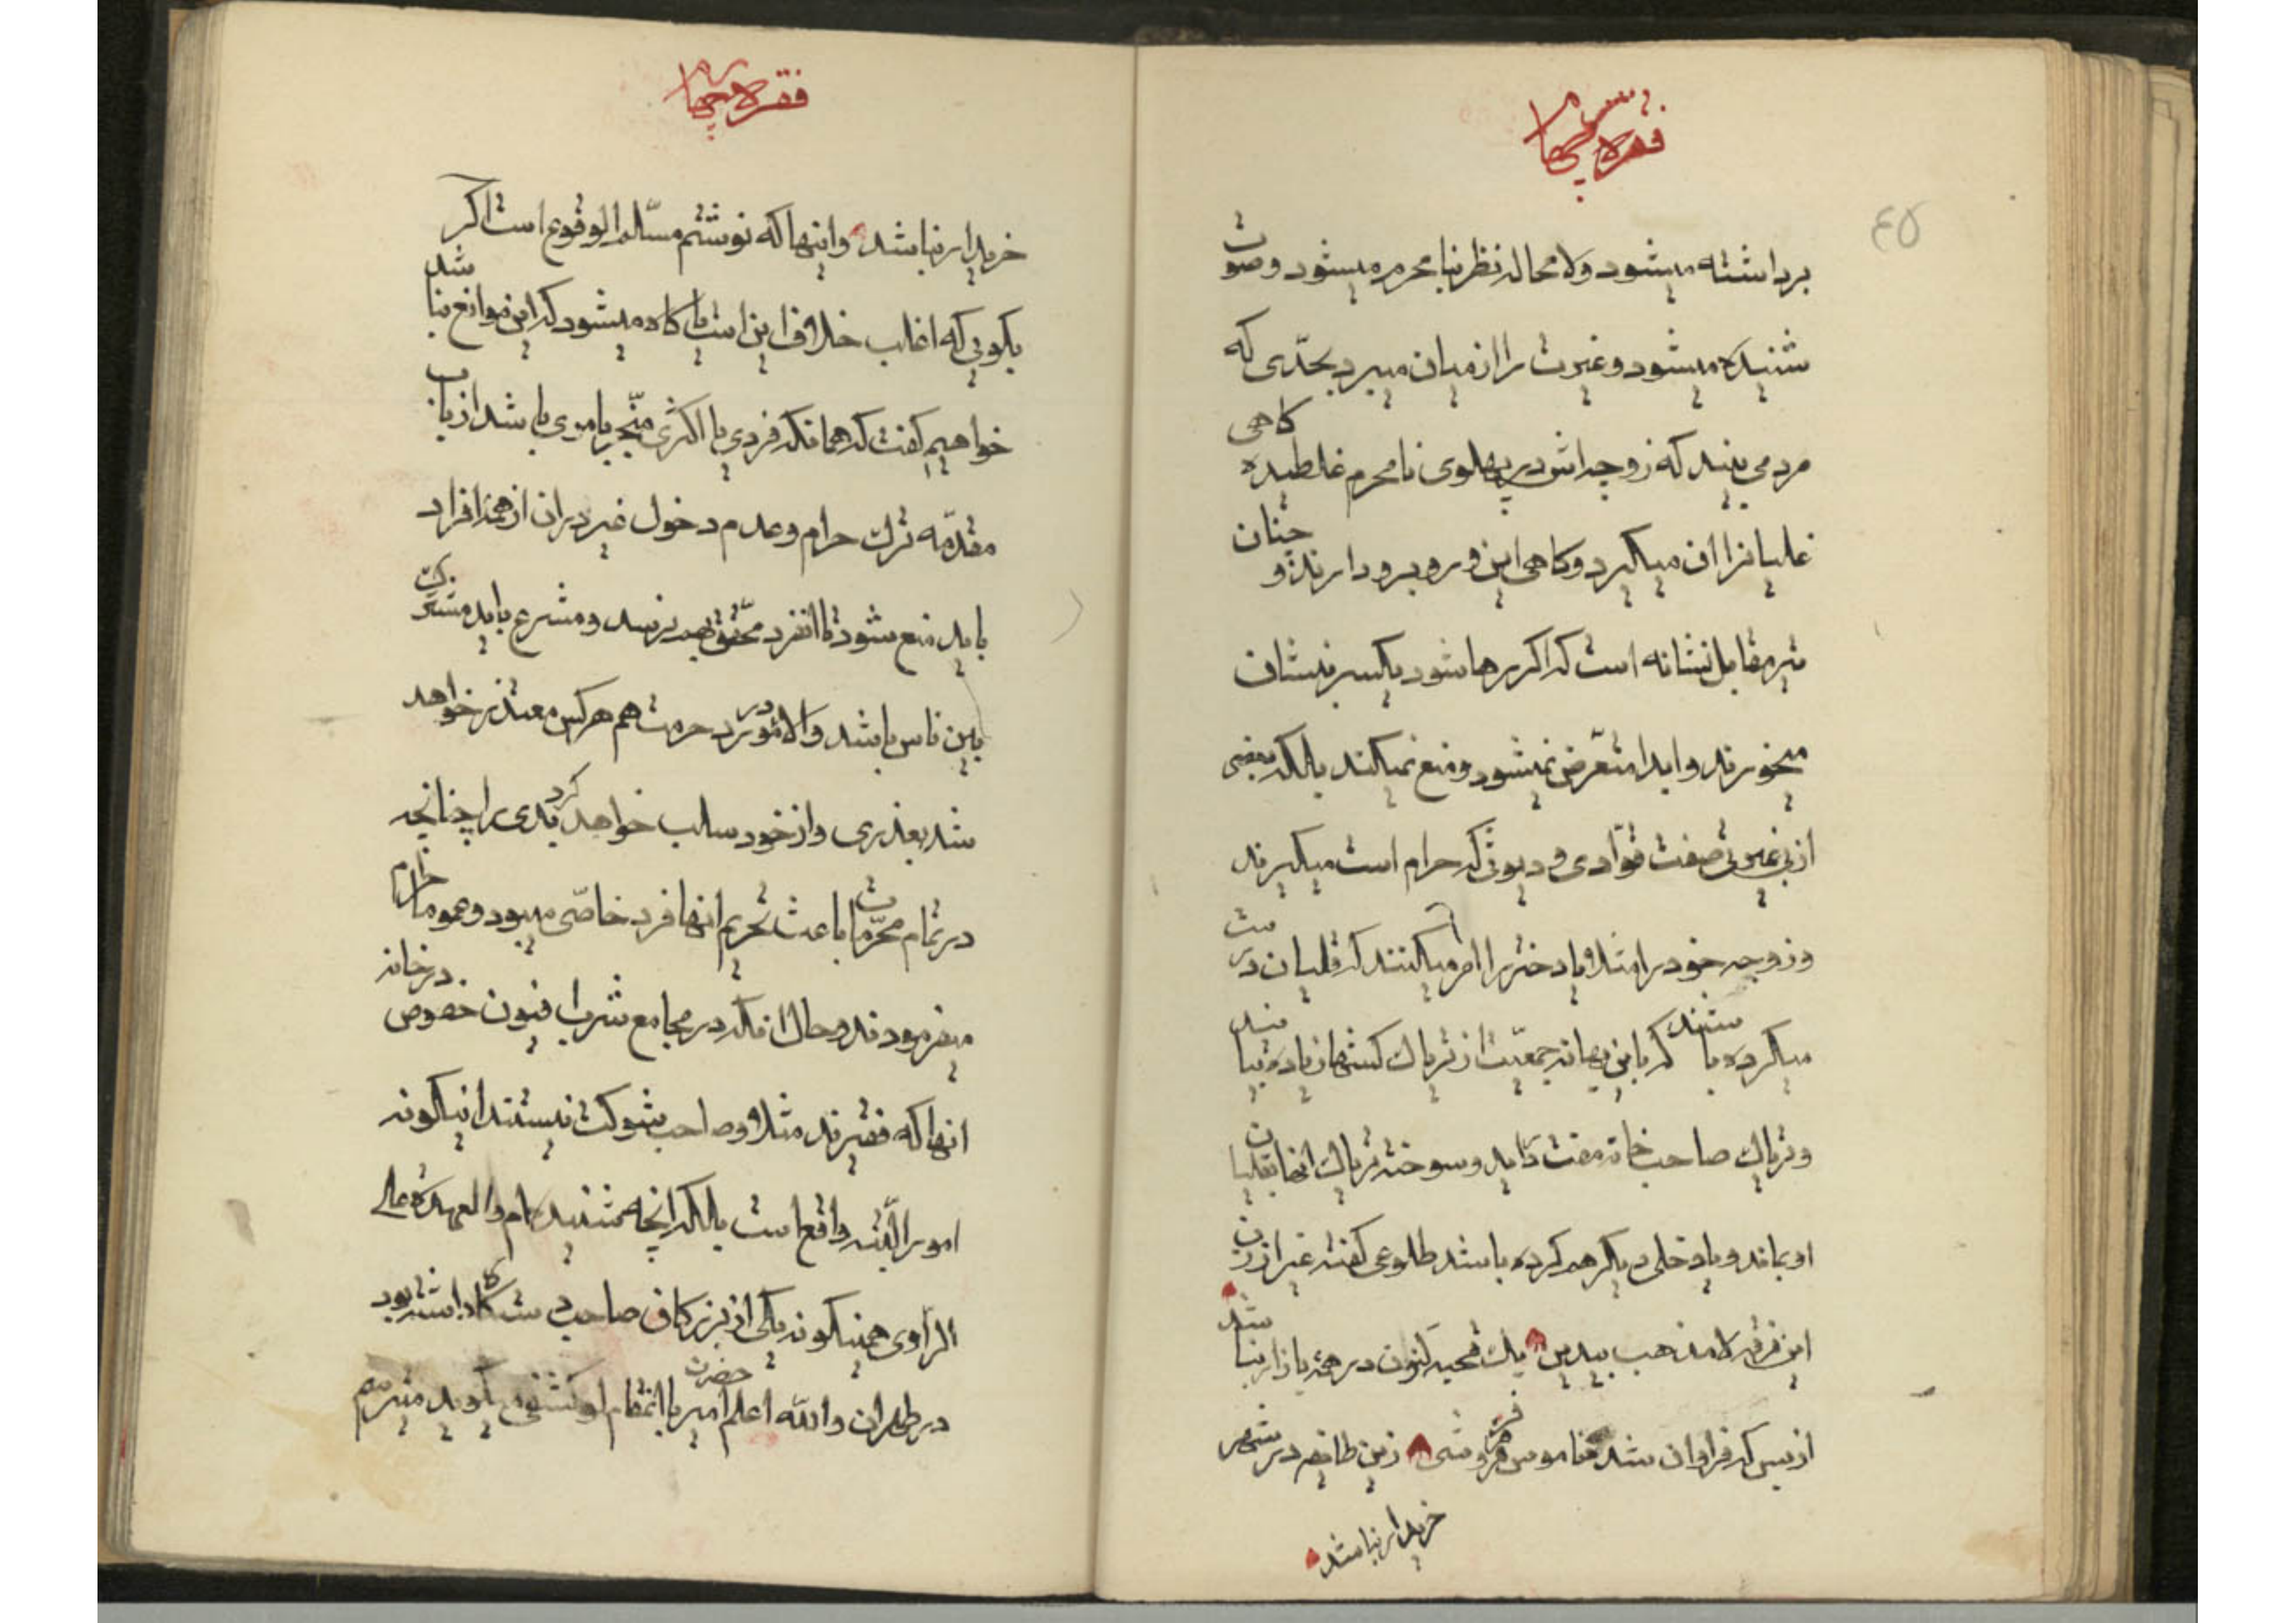 فقره پنجم
۴۵
برداشته میشود ولا محاله نظر بنا محرم میشود وصوت
شنیده میشود وغیرت را از میان میبرد بحدّی که
کاهی
مرد می بیند که زوجه اش در پهلوی نامحرم غلطیده
غلیانرا ان میکیرد وکاهی این و روبرو دارند و چنان
تیر مقابل نشانه است که اکر رها شود یکسر نیشان
میخورند وابدا متعرّض نمیشود ومنع نمیکند بلکه بعضی
از بی غیرتی صفت قوّادی و دیوثی که حرام است میکیرند
وزوجه خود را مثلا و یا دختر را امر میکنند که قلیان درست
میکرده باشند که باین بهانه جمعیّت از تریاک کشها زیاده بیایند
وتریاک صاحب خانه مفت داید وسوخته تریاک انها بقلیان
او بماند ویا دخلی دیکر هم کرده باشد طلوعی کفته غیر از زن
این فرقه لا مذهب بیدین یک قحبه کنون در همه بازار نباشد
از بس که فراوان شده ناموس فروشی زین طایفه در شهر
خریدار نباشد
فقره پنجم
خریدار نباشد وانیها که نوشتم مسّلم الوقوع است اکر
بکوئی که اغلب خلاف این است یا کاه میشود که این موانع نباشد
خواهیم کفت که همانکه فردی یا اکثری منّجر بامری باشد از باب
مقدّمه ترک حرام وعدم دخول غیر در ان از همه افراد
باید منع شود تا انفرد محّقق بهم نرسد ومشرع باید مشترک
بین ناس باشد والا مؤثر در حرمت هم هرکس معتذر خواهد
شد بعذری واز خود سلب خواهد کرد بدی را چنانچه
در تمام محرّمات باعث تحریم انها فرد خاصّی میبود وعموما حرام
میفرمودند وحال انکه در مجامع شراب فنون خصوص در خانه
انها که فقیرند مثلا وصاحب شوکت نیستند اینکونه
امور الّبته واقع است بلکه انچه شنیده ام والعهدة علی
الراوی همینکونه یکی از بزرکان صاحب دستکاه داشته بود
در طهران والله اعلم حضرت امیر با انتقام او کشتی میکوید میترسم